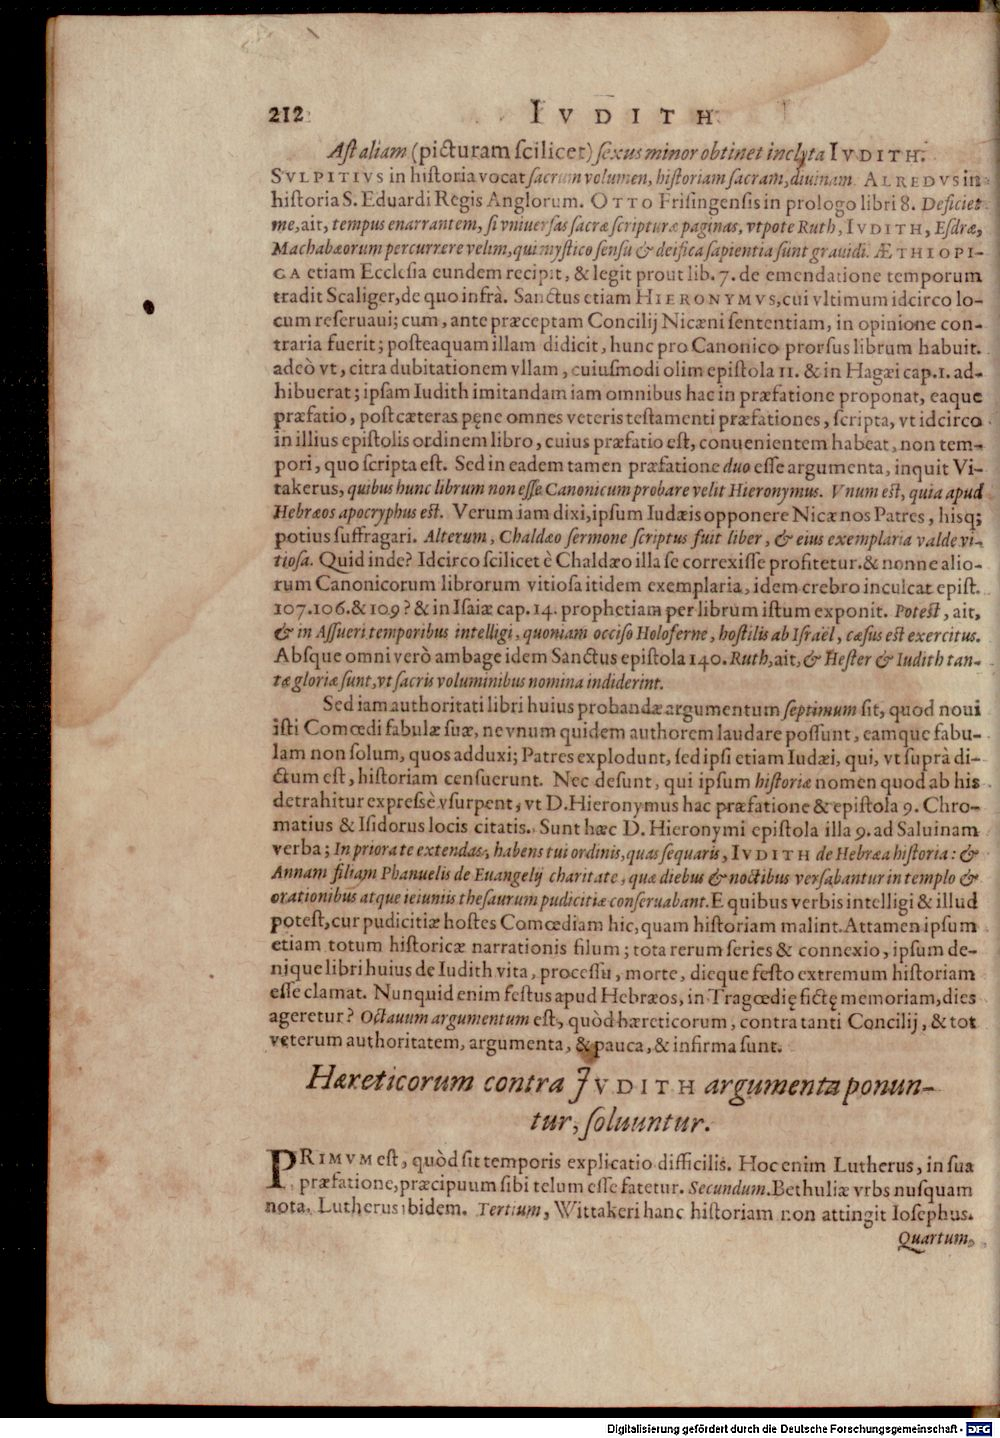 212 IVDITH.
Ast aliam (picturam scilicet) sexus minor obtinet inclyta IVDITH.
SVLPITIVS in historia vocat sacrum volumen, historiam sacram, diuinam. ALREDVS in
historia S. Eduardi Regis Anglorum. OTTO Frisingensis in prologo libri 8. Deficiet
me, ait, tempus enarrantem, si vniuersas sacræ scripturæ paginas, vtpote Ruth, IVDITH, Esdræ,
Machabæorum percurrere velim, qui mystico sensu & deifica sapientia sunt grauidi. ÆTHIOPI-
CA etiam Ecclesia eundem recipit, & legit prout lib. 7. de emendatione temporum
tradit Scaliger, de quo infrà. Sanctus etiam HIERONYMVS, cui vltimum idcirco lo-
cum reseruaui; cum, ante præceptam Concilij Nicæni sententiam, in opinione con-
traria fuerit; posteaquam illam didicit, hunc pro Canonico prorsus librum habuit.
adeò vt, citra dubitationem vllam, cuiusmodi olim epistola 11. & in Hagæi cap. 1. ad-
hibuerat; ipsam Iudith imitandam iam omnibus hac in præfatione proponat, eaque
præfatio, post cæteras pęne omnes veteris testamenti præfationes, scripta, vt idcirco
in illius epistolis ordinem libro, cuius præfatio est, conuenientem habeat, non tem-
pori, quo scripta est. Sed in eadem tamen præfatione duo esse argumenta, inquit Vi-
takerus, quibus hunc librum non esse Canonicum probare velit Hieronymus. Vnum est, quia apud
Hebræos apocryphus est. Verum iam dixi, ipsum Iudæis opponere Nicænos Patres, hisq;
potius suffragari. Alterum, Chaldæo sermone scriptus fuit liber, & eius exemplaria valde vi-
tiosa. Quid inde? Idcirco scilicet è Chaldæo illa se correxisse profitetur. & nonne alio-
rum Canonicorum librorum vitiosa itidem exemplaria, idem crebro inculcat epist.
107. 106. & 109? & in Isaiæ cap. 14. prophetiam per librum istum exponit. Potest, ait,
& in Assueri temporibus intelligi, quoniam occiso Holoferne, hostilis ab Israël, cæsus est exercitus.
Absque omni verò ambage idem Sanctus epistola 140. Ruth, ait, & Hester & Iudith tan-
tæ gloriæ sunt, vt sacris voluminibus nomina indiderint.
Sed iam authoritati libri huius probandæ argumentum septimum sit, quod noui
isti Comœdi fabulæ suæ, ne vnum quidem authorem laudare possunt, eamque fabu-
lam non solum, quos adduxi; Patres explodunt, sed ipsi etiam Iudæi, qui, vt suprà di-
ctum est, historiam censuerunt. Nec desunt, qui ipsum historiæ nomen quod ab his
detrahitur expressè vsurpent, vt D. Hieronymus hac præfatione & epistola 9. Chro-
matius & Isidorus locis citatis. Sunt hæc D. Hieronymi epistola illa 9. ad Saluinam
verba; In priora te extendas, habens tui ordinis, quas sequaris, IVDITH de Hebræa historia: &
Annam filiam Phanuelis de Euangelij charitate, quæ diebus & noctibus versabantur in templo &
orationibus atque ieiuniis thesaurum pudicitiæ conseruabant. E quibus verbis intelligi & illud
potest, cur pudicitiæ hostes Comœdiam hic, quam historiam malint. Attamen ipsum
etiam totum historicæ narrationis filum; tota rerum series & connexio, ipsum de-
nique libri huius de Iudith vita, processu, morte, dieque festo extremum historiam
esse clamat. Nunquid enim festus apud Hebræos, in Tragœdię fictę memoriam, dies
ageretur? Octauum argumentum est, quòd hæreticorum, contra tanti Concilij, & tot
veterum authoritatem, argumenta, & pauca, & infirma sunt.
Hæreticorum contra IVDITH argumenta ponun-
tur, soluuntur.
PRIMVM est, quòd sit temporis explicatio difficilis. Hoc enim Lutherus, in sua
præfatione, præcipuum sibi telum esse fatetur. Secundum. Bethuliæ vrbs nusquam
nota. Lutherus ibidem. Tertium, Wittakeri hanc historiam non attingit Iosephus.
Quartum,
Digitalisierung gefördert durch die Deutsche Forschungsgemeinschaft - DFG